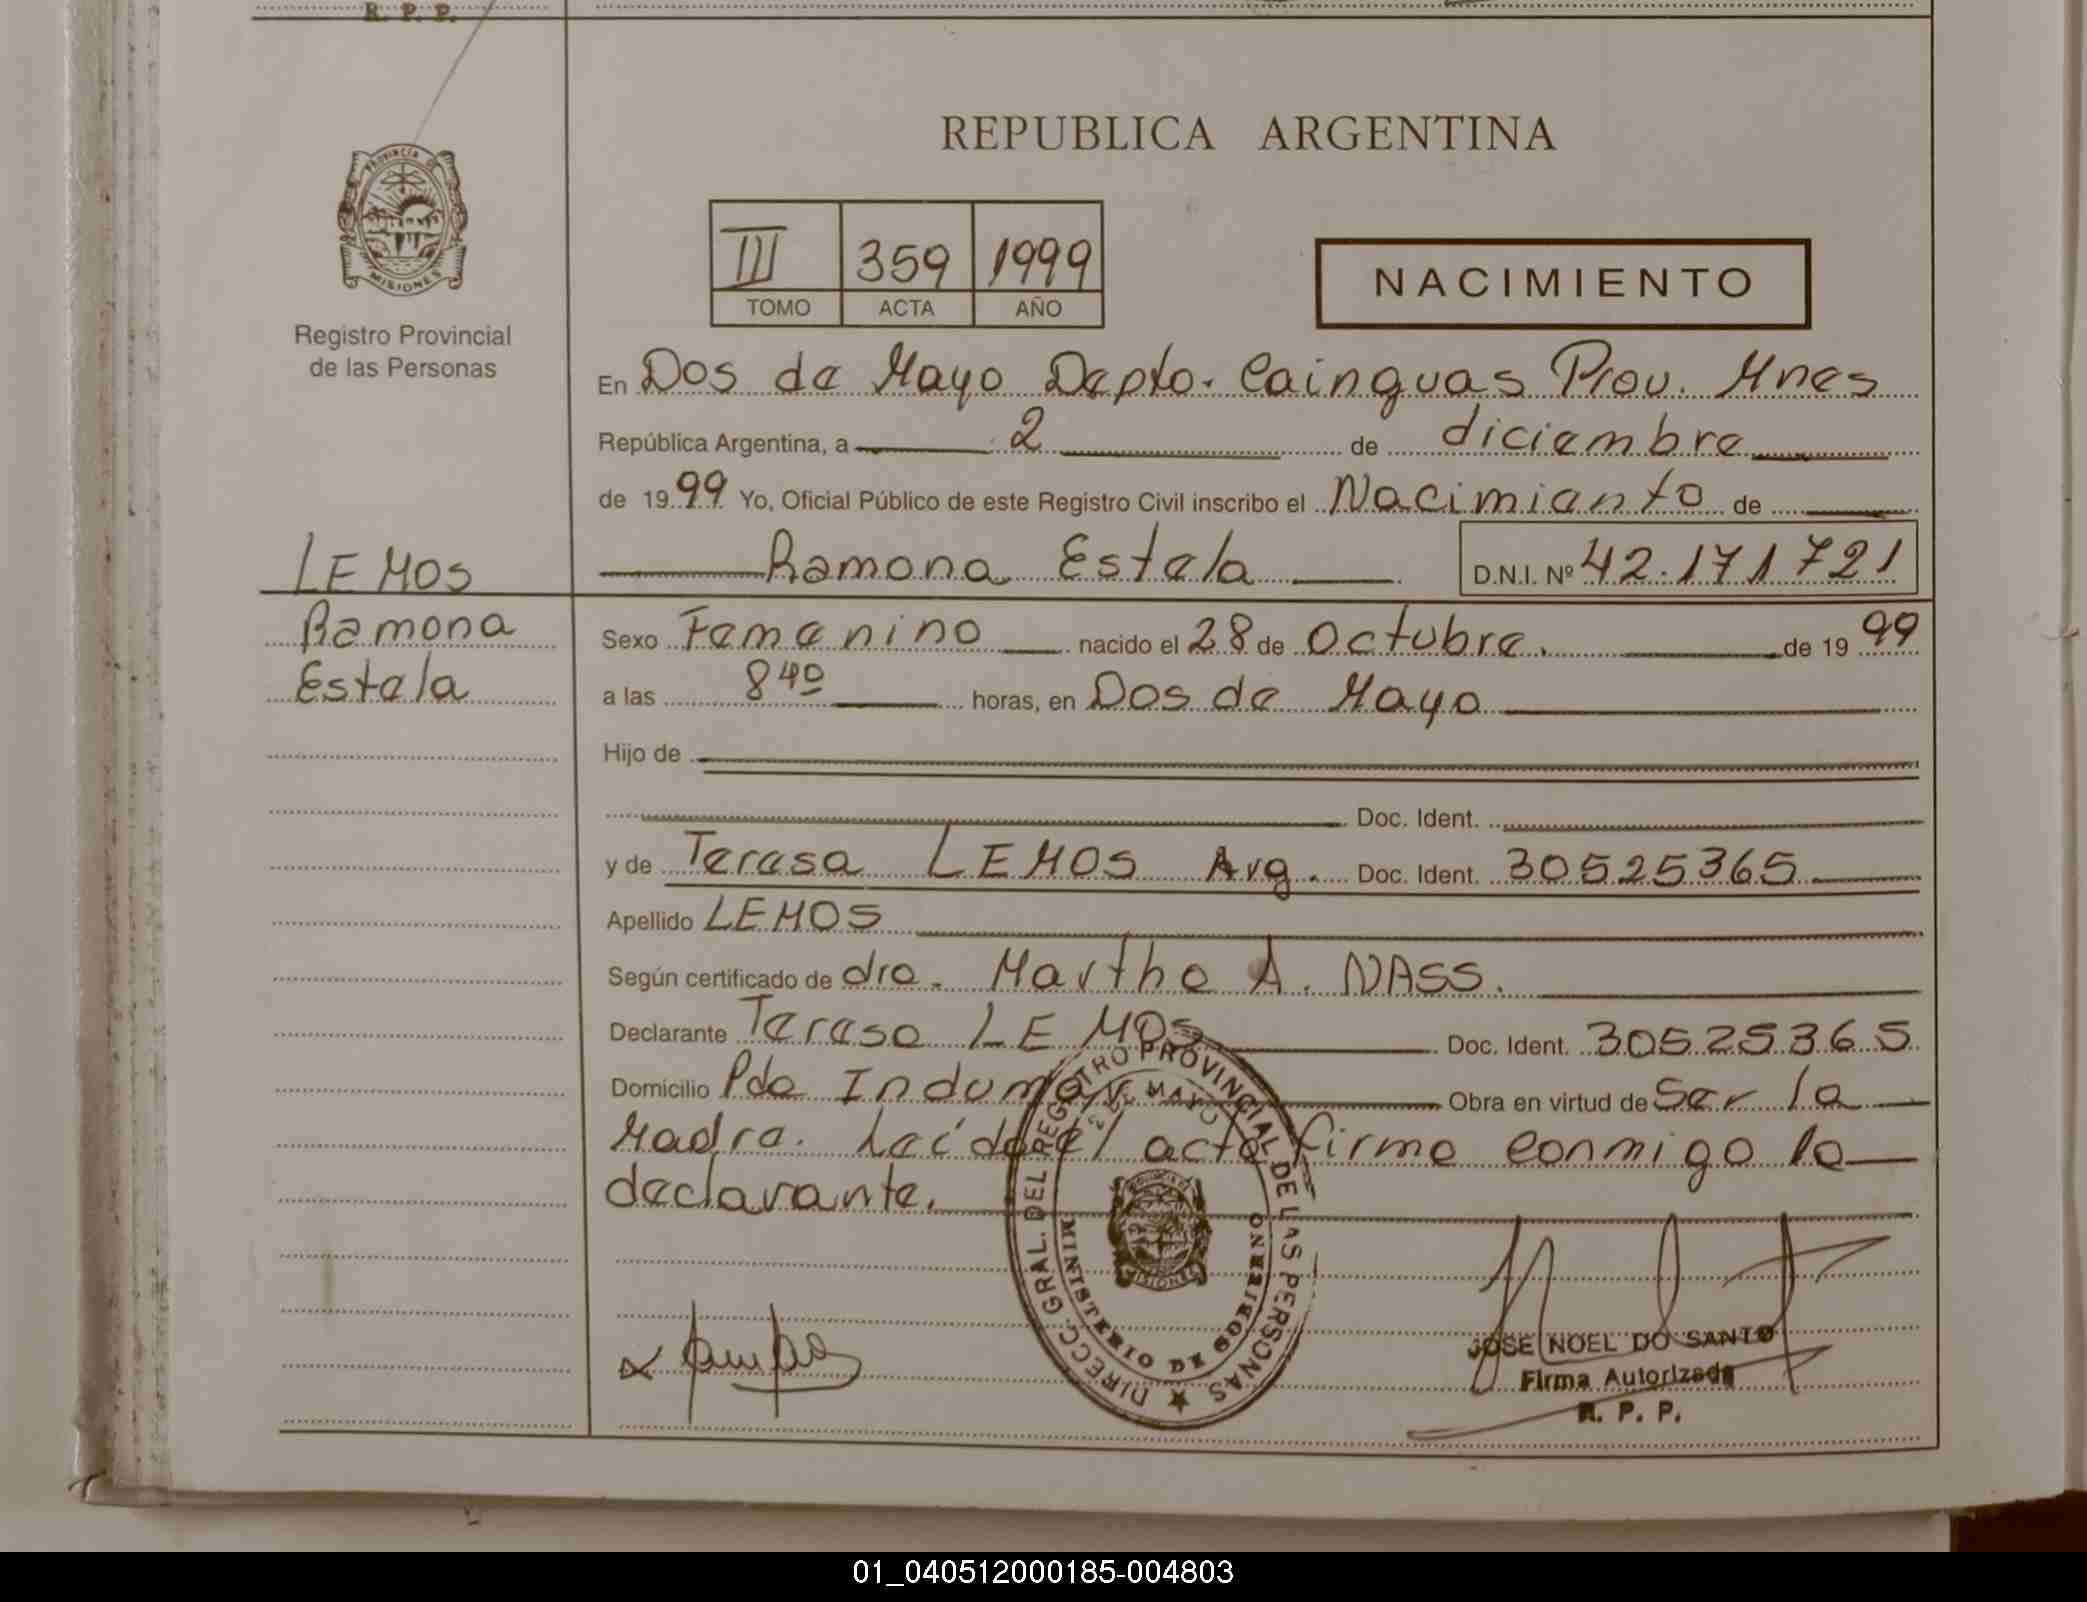 R. P. P.
REPUBLICA ARGENTINA
PROVINCIA DE
MISIONES
Registro Provincial
de las Personas
III 359 1999
TOMO ACTA AÑO
NACIMIENTO
En Dos de Mayo Depto. Cainguas Prov. Mnes
República Argentina, a 2 de diciembre
de 1999 Yo, Oficial Público de este Registro Civil inscribo el Nacimiento de
Ramona Estela D.N.I. Nº 42.171721
LEMOS
Ramona
Estela
Sexo Femenino nacido el 28 de Octubre. de 1999
a las 8 40 horas, en Dos de Mayo
Hijo de
Doc. Ident.
y de Teresa LEMOS Arg. Doc. Ident. 30525365
Apellido LEMOS
Según certificado de dra. Martha A. NASS.
Declarante Teresa LEMOS Doc. Ident. 30525365
Domicilio Pda Indumar Obra en virtud de Ser la
Madre. Leído el acta firma conmigo la
declarante.
DIRECC. GRAL. DEL REGISTRO PROVINCIAL DE LAS PERSONAS
2 DE MAYO
MINISTERIO DE GOBIERNO
JOSE NOEL DO SANTO
Firma Autorizada
R. P. P.
01_040512000185-004803